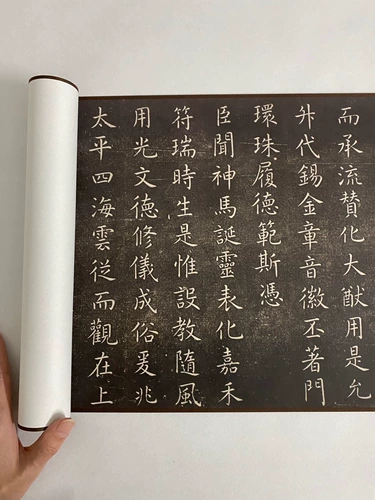 而承流賛化大猷用是允
升代錫金章音徽丕著門
環珠履德範斯憑
臣聞神馬誕靈表化嘉禾
符瑞時生是惟設教隨風
用光文德修儀成俗爰兆
太平四海雲從而觀在上